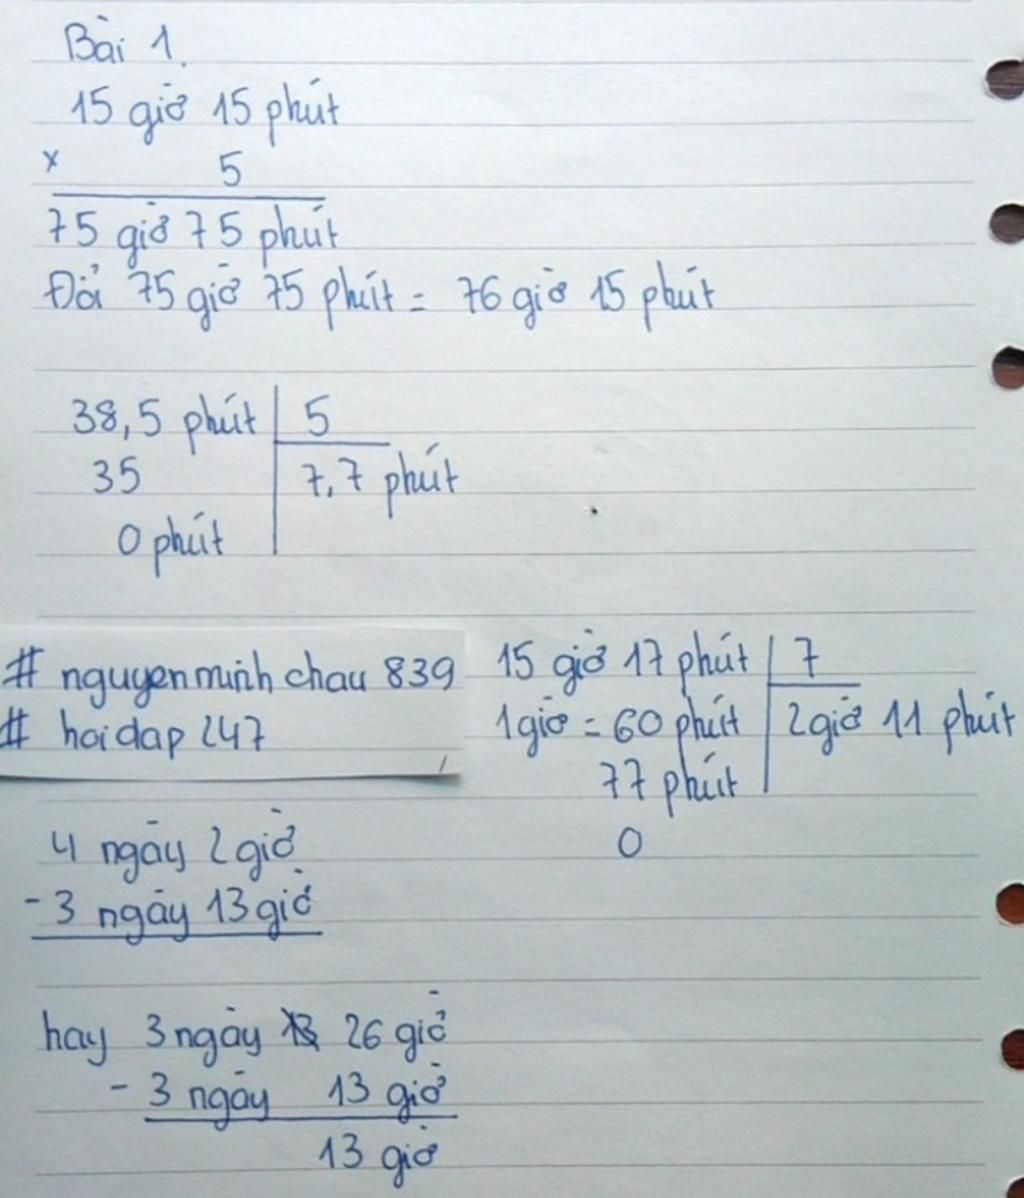 Bài 1.
15 giờ 15 phút
x 5
75 giờ 75 phút
Đổi 75 giờ 75 phút = 76 giờ 15 phút
38,5 phút 5
35 7,7 phút
0 phút
# nguyenminhchau 839
# hoidap 247
15 giờ 17 phút 7
1 giờ = 60 phút 2 giờ 11 phút
77 phút
0
4 ngày 2 giờ
- 3 ngày 13 giờ
hay 3 ngày 26 giờ
- 3 ngày 13 giờ
13 giờ